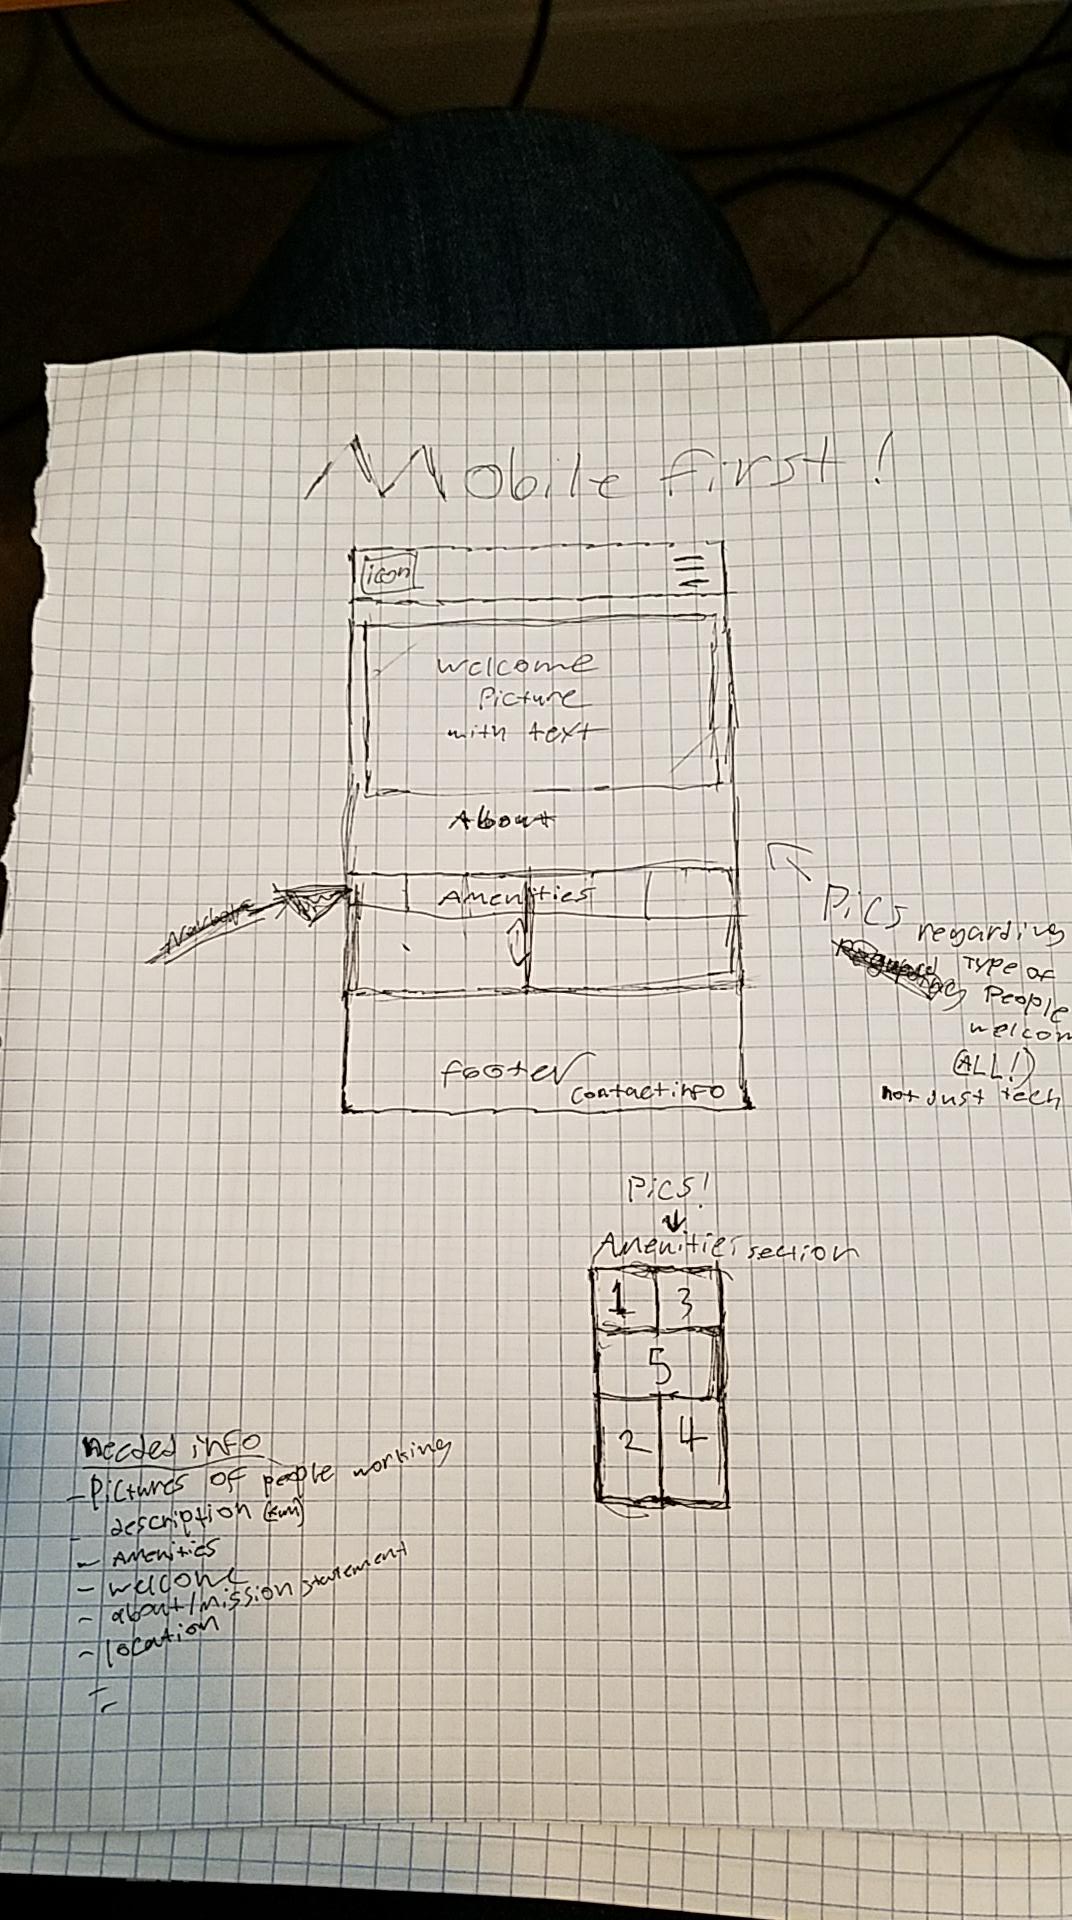 Mobile first!
icon
welcome
Picture
with text
About
Amenities
footer
contact info
Pics
regarding
Type of
People
welcom
(ALL!)
not Just tech
Pics!
Amenities section
1 3
5
2 4
Needed info
- Pictures of people working
- description
- Amenities
- welcome
- about/mission statement
- location
-
-